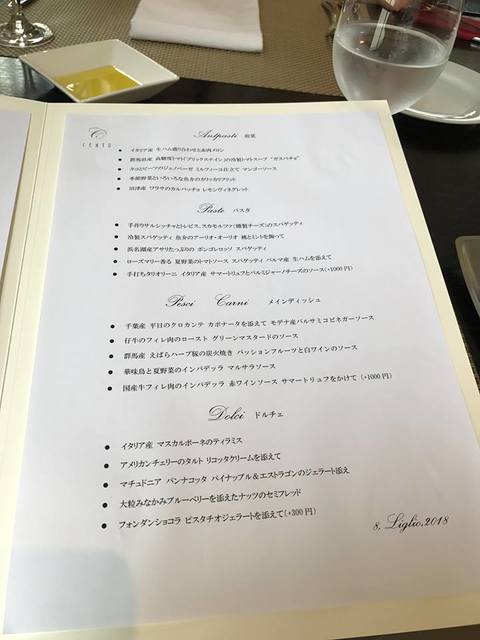 CENTO
Antpasti 前菜
● イタリア産 生ハム盛り合わせと赤肉メロン
● 群馬県産 高糖度トマト「ブリックスナイン」の冷製トマトスープ “ガスパチョ”
● タコとビーツのジェノベーゼ ミルフィーユ仕立て マンゴーソース
● 季節野菜といろいろな魚介のカリッカリフリット
● 沼津産 ワラサのカルパッチョ レモンヴィネグレット
Paste パスタ
● 手作りサルシッチャとトレビス、スカモルツァ(燻製チーズ)のスパゲッティ
● 冷製スパゲッティ 魚介のアーリオ・オーリオ 桃とミントを飾って
● 浜名湖産アサリたっぷりの ボンゴレロッソ スパゲッティ
● ローズマリー香る 夏野菜のトマトソース スパゲッティ パルマ産 生ハムを添えて
● 手打ちタリオリーニ イタリア産 サマートリュフとパルミジャーノチーズのソース(+1000円)
Pesci Carni メインディッシュ
● 千葉産 平目のクロカンテ カポナータを添えて モデナ産バルサミコビネガーソース
● 仔牛のフィレ肉のロースト グリーンマスタードのソース
● 群馬産 えばらハーブ豚の炭火焼き パッションフルーツと白ワインのソース
● 華味鳥と夏野菜のインパデッラ マルサラソース
● 国産牛フィレ肉のインパデッラ 赤ワインソース サマートリュフをかけて (+1000円)
Dolci ドルチェ
● イタリア産 マスカルポーネのティラミス
● アメリカンチェリーのタルト リコッタクリームを添えて
● マチュドニア パンナコッタ パイナップル&エストラゴンのジェラート添え
● 大粒みなかみブルーベリーを添えたナッツのセミフレッド
● フォンダンショコラ ピスタチオジェラートを添えて(+300円)
8, Liglio, 2018